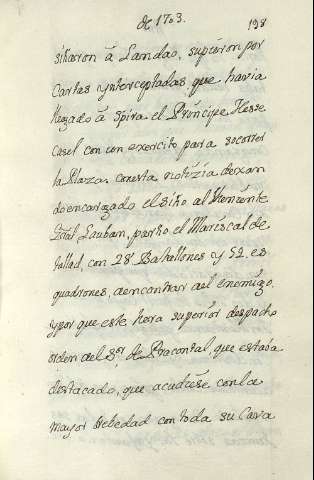 de 1703.
198
sitiaron â Landao, supieron por
Cartas ynterceptadas que havia
llegado â Spira el Principe Hesse
Casel con un exercito para socorrer
la Plaza. conesta notizia dexan
do encargado el sitio al Themente
Gral Lauban, partio el Mariscal de
tallad, con 28 Batallones y 52. es
quadrones, aencontrar ael enemigo.
ypor que este hera superior despacho
orden ael Sor. de Pracontal, que estaba
destacado, que acudiese conla
mayor brebedad con toda su Cava